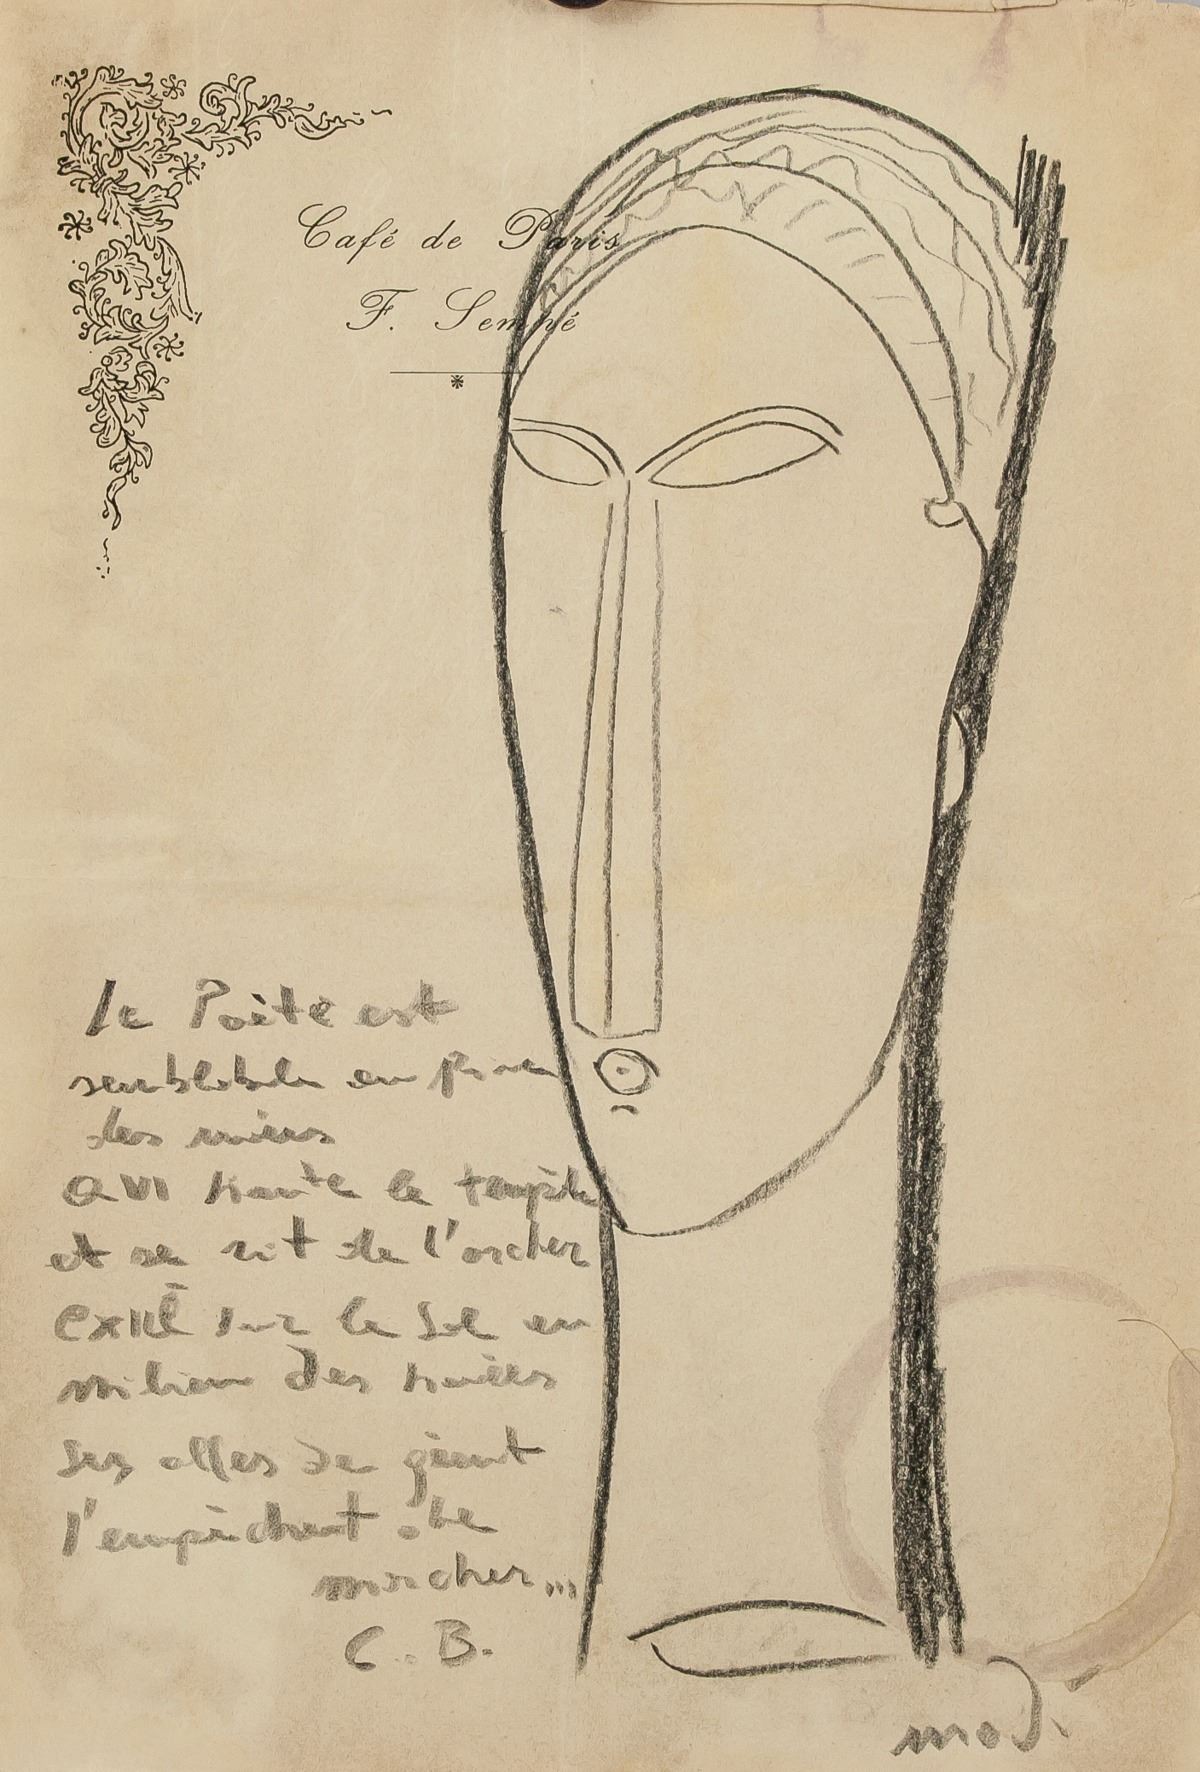 Café de Paris
F. Sempé
le Poète est
semblable au prince
des nuées
QUI hante la tempête
et se rit de l'archer
Exilé sur le sol au
milieu des huées
ses aîles de géant
l'empêchent de
marcher...
C. B.
mod.